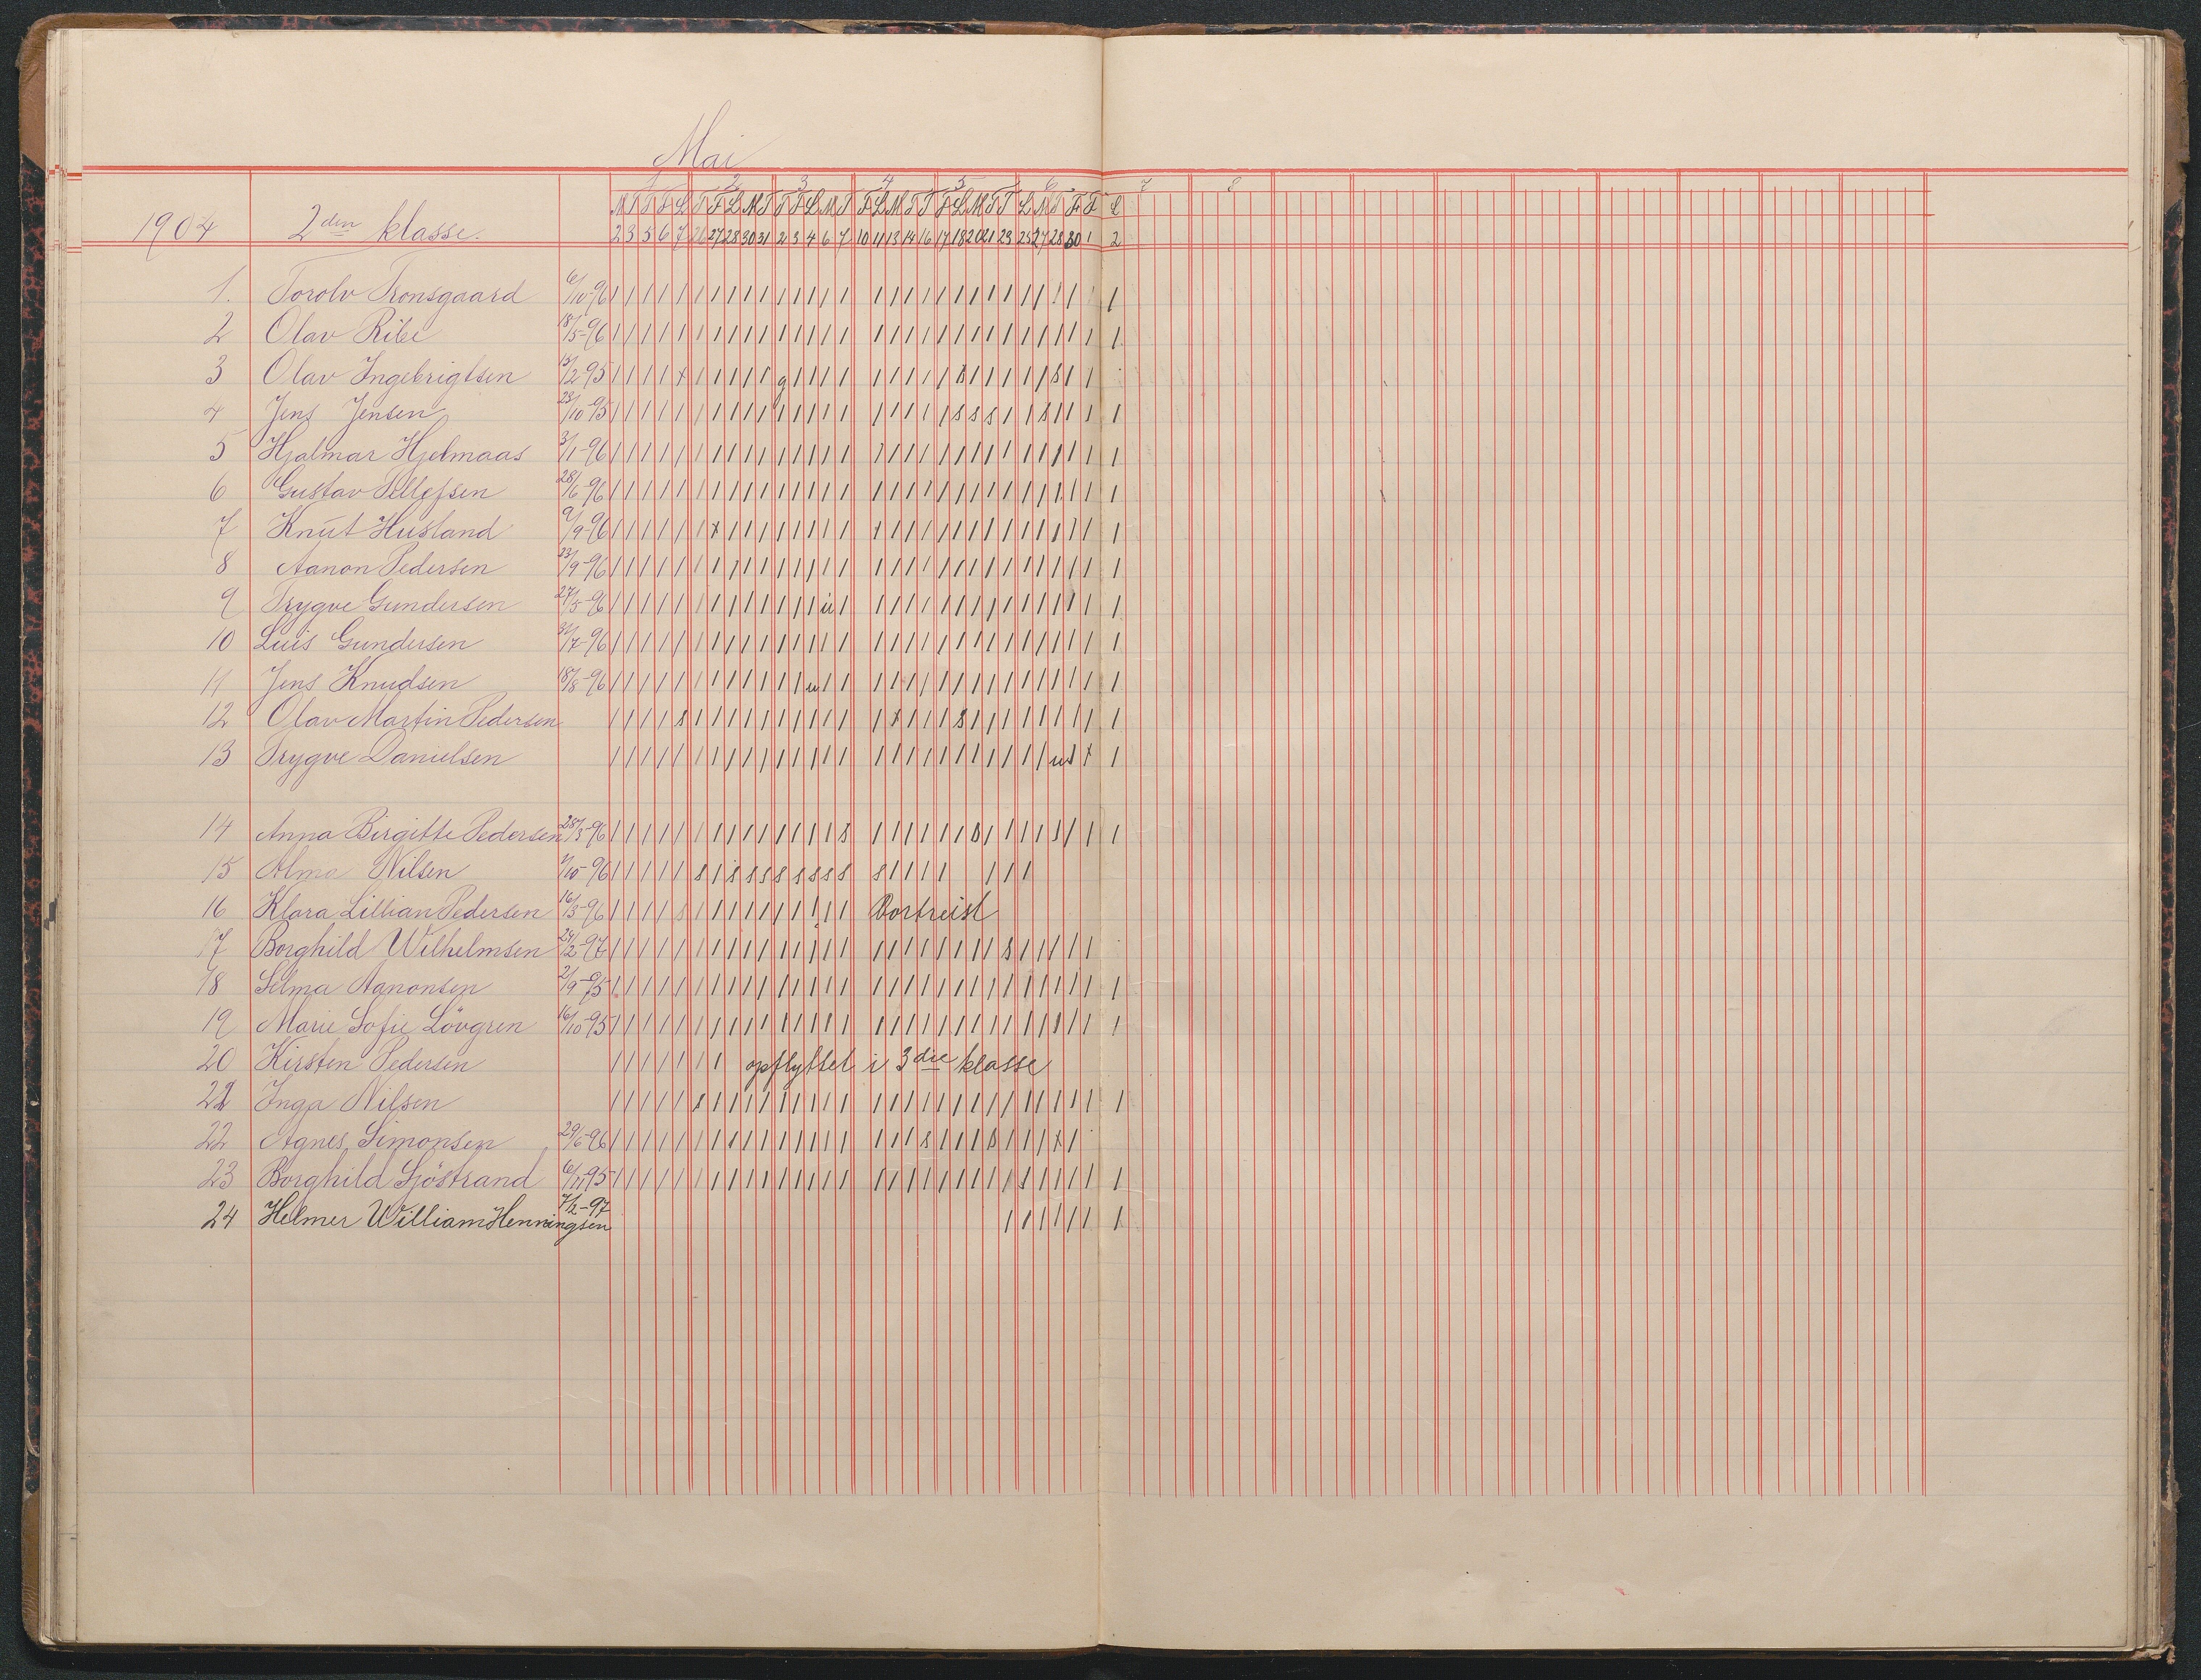 Mai
1 2 3 4 5 6 7 8
M T T F L T F L M T T F L M T F L M T T F L M T T L M T F L
1904 2den klasse.
2 3 5 6 7 26 27 28 30 31 2 3 4 6 7 10 11 13 14 16 17 18 20 21 23 25 27 28 30 1 2
1. Torolv Tronsgaard 6/10-96
2 Olav Ribe 18/5-96
3 Olav Ingebrigtsen 15/2 95
4 Jens Jensen 23/10-95
5 Hjalmar Hjelmaas 3/1-96
6 Gustav Tellefsen 28/6-96
7 Knut Husland 9/9-96
8 Aanon Pedersen 23/9-96
9 Trygve Gundersen 27/5-96
10 Luis Gundersen 7-96
11 Jens Knudsen 18/8-96
12 Olav Martin Pedersen
13 Trygve Danielsen
14 Anna Birgitte Pedersen 28/3-96
15 Alma Nilsen 10-96
16 Klara Lillian Pedersen 16/3-96 Bortreist
17 Borghild Wilhelmsen 24/2-97
18 Selma Aanonsen 2/9-95
19 Marie Sofie Lövgren 16/10-95
20 Kirsten Pedersen opflyttet i 3die klasse
21 Inga Nilsen
22 Agnes Simonsen 29/6-96
23 Borghild Sjöstrand 6/11 95
24 Helmer William Henningsen 7/2-97